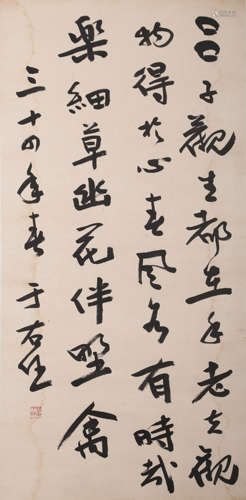 吕子观生都在年老去观
物得於心春风各有时哉
乐细草幽花伴野禽
三十四年春 于右任